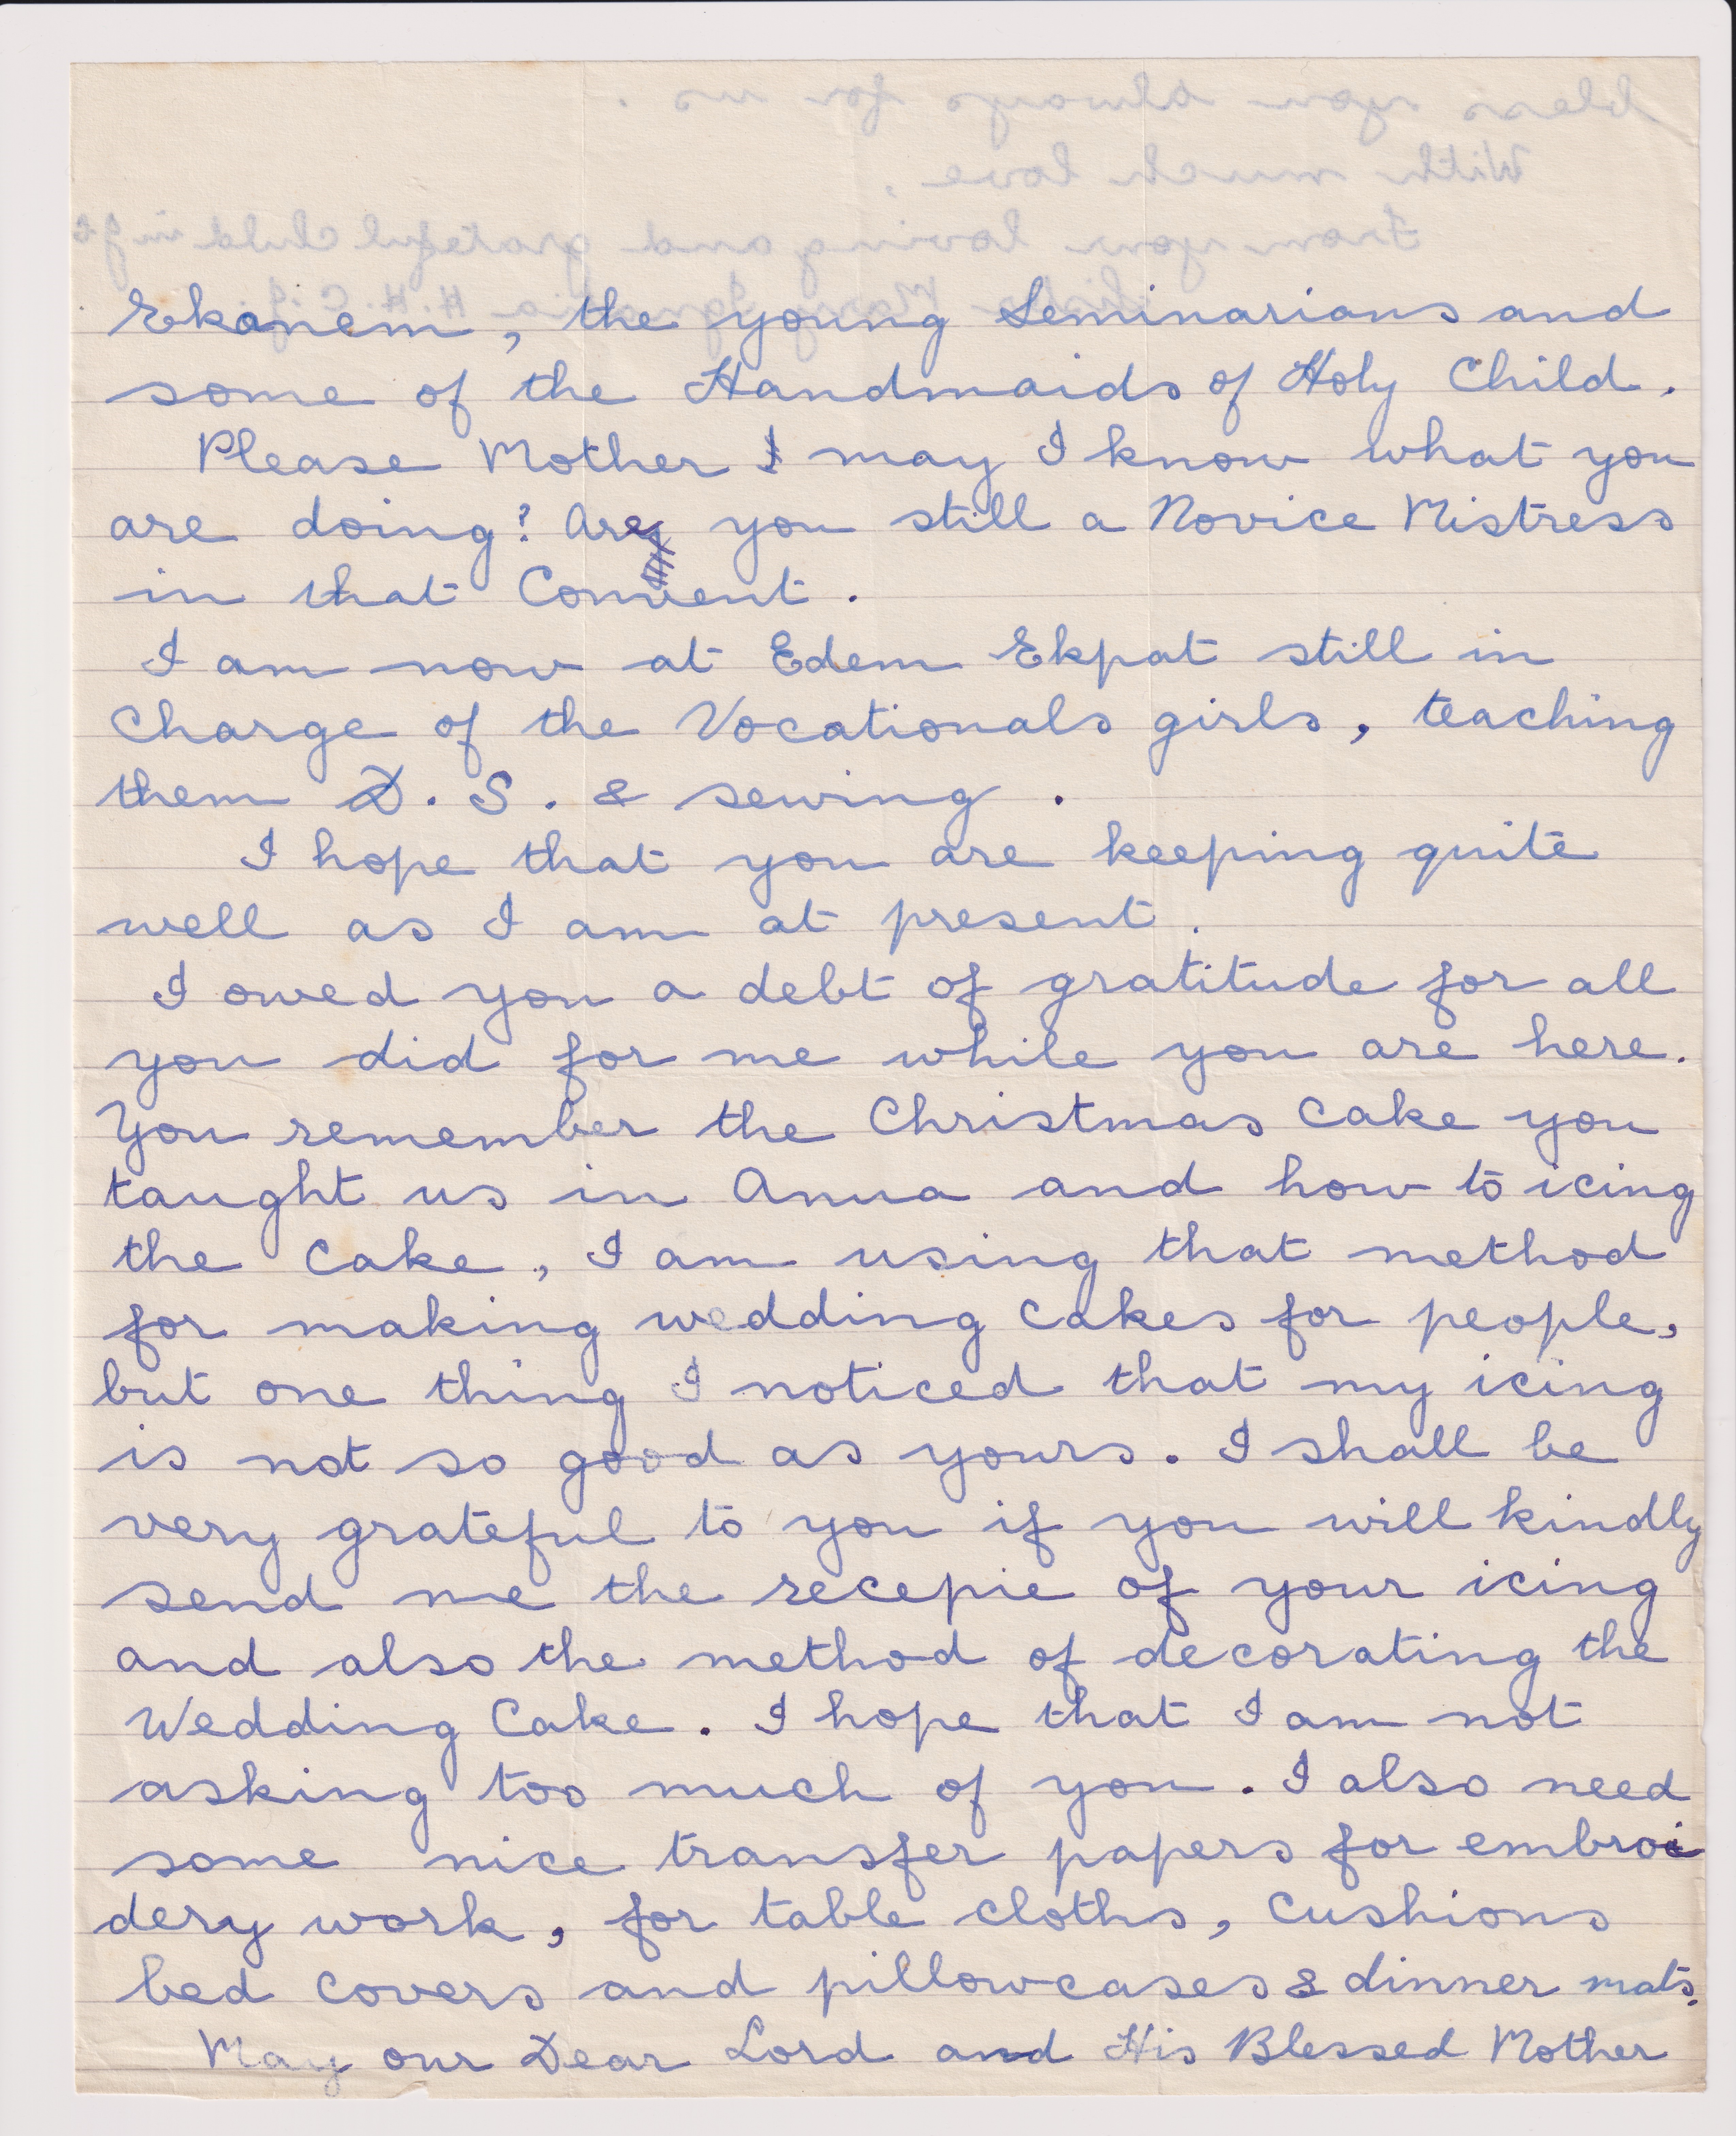 Ekanem, the young Seminarians and
some of the Handmaids of Holy Child.
Please Mother I may I know what you
are doing? Are you still a Novice Mistress
in that Convent.
I am now at Edem Ekpat still in
Charge of the Vocationals girls, teaching
them D. S. & sewing.
I hope that you are keeping quite
well as I am at present.
I owed you a debt of gratitude for all
you did for me while you are here.
You remember the Christmas Cake you
taught us in Anua and how to icing
the Cake, I am using that method
for making wedding Cakes for people,
but one thing I noticed that my icing
is not so good as yours. I shall be
very grateful to you if you will kindly
send me the recepie of your icing
and also the method of decorating the
Wedding Cake. I hope that I am not
asking too much of you. I also need
some nice transfer papers for embroi
dery work, for table cloths, Cushions
bed Covers and pillowcases & dinner mats.
May our Dear Lord and His Blessed Mother
bless you always for us.
With much love,
From your loving and grateful child in